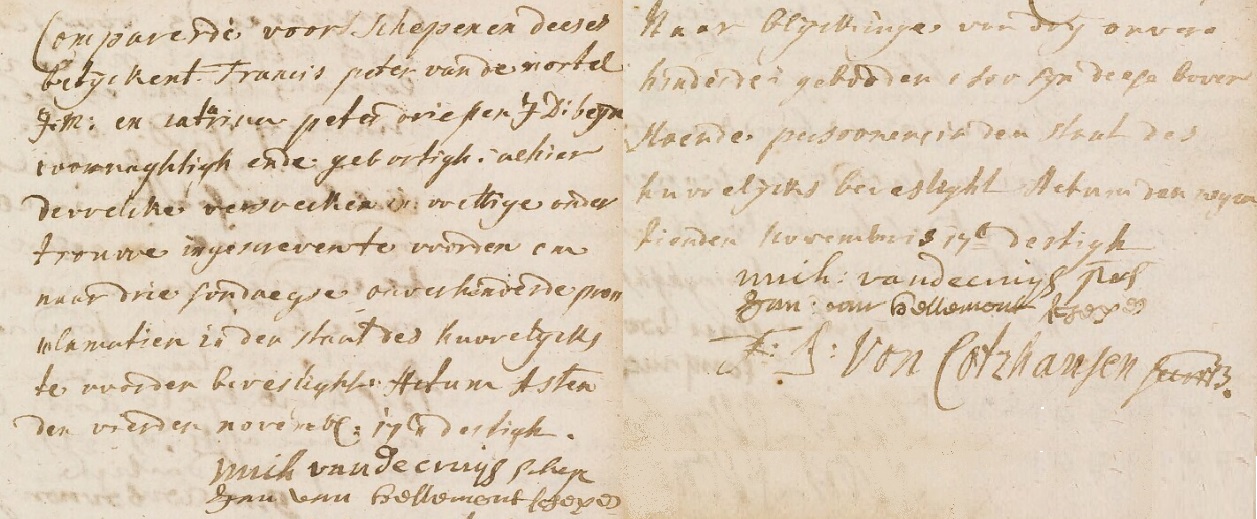 Compareerde voor schepenen deeser
betyckent Francis peter van de mortel
J:M: en catrijn peter driessen J:D: beyde
woonaghtigh ende gebortigh alhier
dewelke versoecken in wettige onder
trouwe ingescreven te worden om
naar drie sondaegse onverhinderde pro
clamatien in den staat des huwelycks
te worden bevestight Actum Asten
den vierden novemb: 17C dertigh.
Mich vandecruijs schep
Jan van hellemont schepen
Naar blyckinge van dry onver
hinderde geboden sijn deese boven
staende persoonen in den staat des
huwelycks bevestight Actum den negen
tienden November 17C dertigh
Mich: vandecruijs schep
Jan: van hellemont schepen
F: J: Von Cotzhausen secrets.